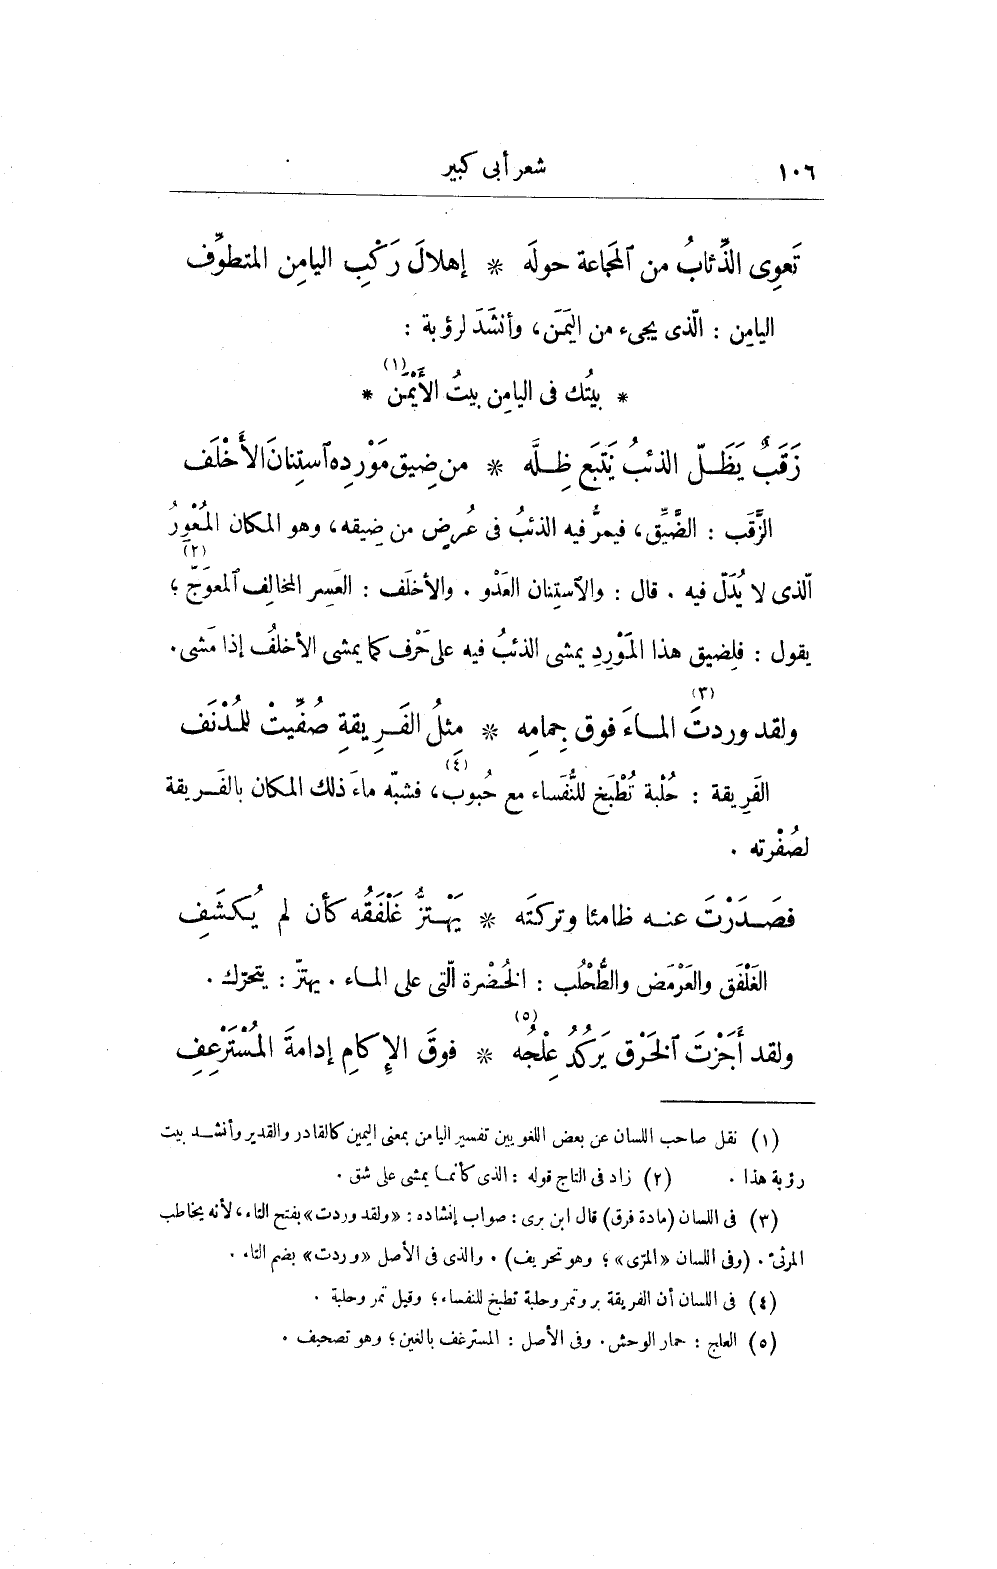 ١٠٦ شعر أبى كبير
تَعوِى الذِّئابُ من ٱلمَجَاعة حولَه * إهلالَ رَكْبِ اليامِن المتطوِّف
اليامِن : الّذى يجىء من اليَمَن، وأنشَدَ لرؤبة :
* بيتُك فى اليامِن بيتُ الأَيْمَن (١) *
زَقَبٌ يَظَلّ الذئبُ يَتبَع ظِلَّه * من ضِيق مَوْرِده ٱستِنانَ الأَخْلَف
الزَّقَب : الضَّيِّق، فيمرُّ فيه الذئبُ فى عُرِض من ضِيقه، وهو المكان المُعْوِرُ
الّذى لا يُدَلّ فيه . قال : والآستِنان العَدْو . والأخلَف : العَسِر المخالِف ٱلمعوَجّ (٢) ؛
يقول : فلِضيق هذا المَوْرِدِ يمشى الذئبُ فيه على حَرْف كما يمشى الأخلفُ إذا مَشى.
ولقد وردتَ (٣) المـاءَ فوق جِمامِه * مِثلُ الفَـرِيقةِ صُفِّيتْ للمُدْنَف
الفَرِيقة : حُلْبة تُطْبَخ للنُّفَساء مع حُبوب (٤)، فشبّه ماءَ ذلك المكان بالفَـريقة
لصُفْرته .
فصَـدَرْتَ عنـه ظامئا وتركتَه * يَهْـتزُّ غَلْفَقُه كأن لم يُكشَفِ
الغَلْفَق والعَرْمَض والطُّحْلُب : الخُضْرة الّتى على المـاء . يهتزّ : يتحرّك .
ولقد أَجَزْتَ ٱلخَرْق يَركُدُ عِلْجُه (٥) * فوقَ الإِكامِ إدامةَ المُسْتَرْعِفِ
(١) نقل صاحب اللسان عن بعض اللغويين تفسير اليامن بمعنى اليمين كالقادر والقدير وأنشـد بيت
رؤبة هذا . (٢) زاد فى التاج قوله : الذى كأنمـا يمشى على شق .
(٣) فى اللسان (مادة فرق) قال ابن برى : صواب إنشاده : «ولقد وردت» بفتح التاء، لأنه يخاطب
المرثىّ . (وفى اللسان «المرّى» ؛ وهو تحريف) . والذى فى الأصل «وردت» بضم التاء .
(٤) فى اللسان أن الفريقة بر وتمر وحلبة تطبخ للنفساء ؛ وقيل تمر وحلبة .
(٥) العلج : حمار الوحش. وفى الأصل : المسترغف بالغين ؛ وهو تصحيف .